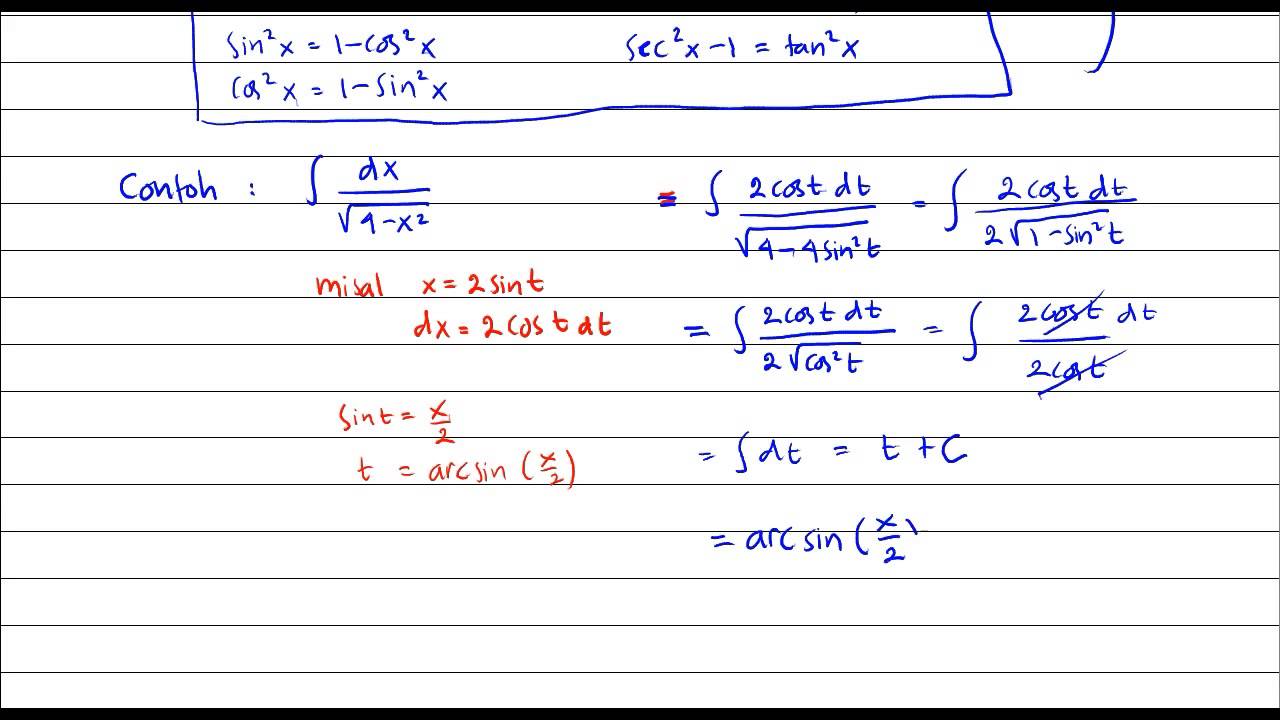 sin²x = 1-cos²x    sec²x-1 = tan²x
cos²x = 1-sin²x
Contoh : ∫ dx/√(4-x²)    = ∫ (2cost dt)/√(4-4sin²t) = ∫ (2cost dt)/(2√(1-sin²t))
misal x = 2sint
dx = 2cost dt    = ∫ (2cost dt)/(2√(cos²t)) = ∫ (2cost dt)/(2cost)
sint = x/2
t = arcsin (x/2)    = ∫dt = t + C
= arcsin (x/2)